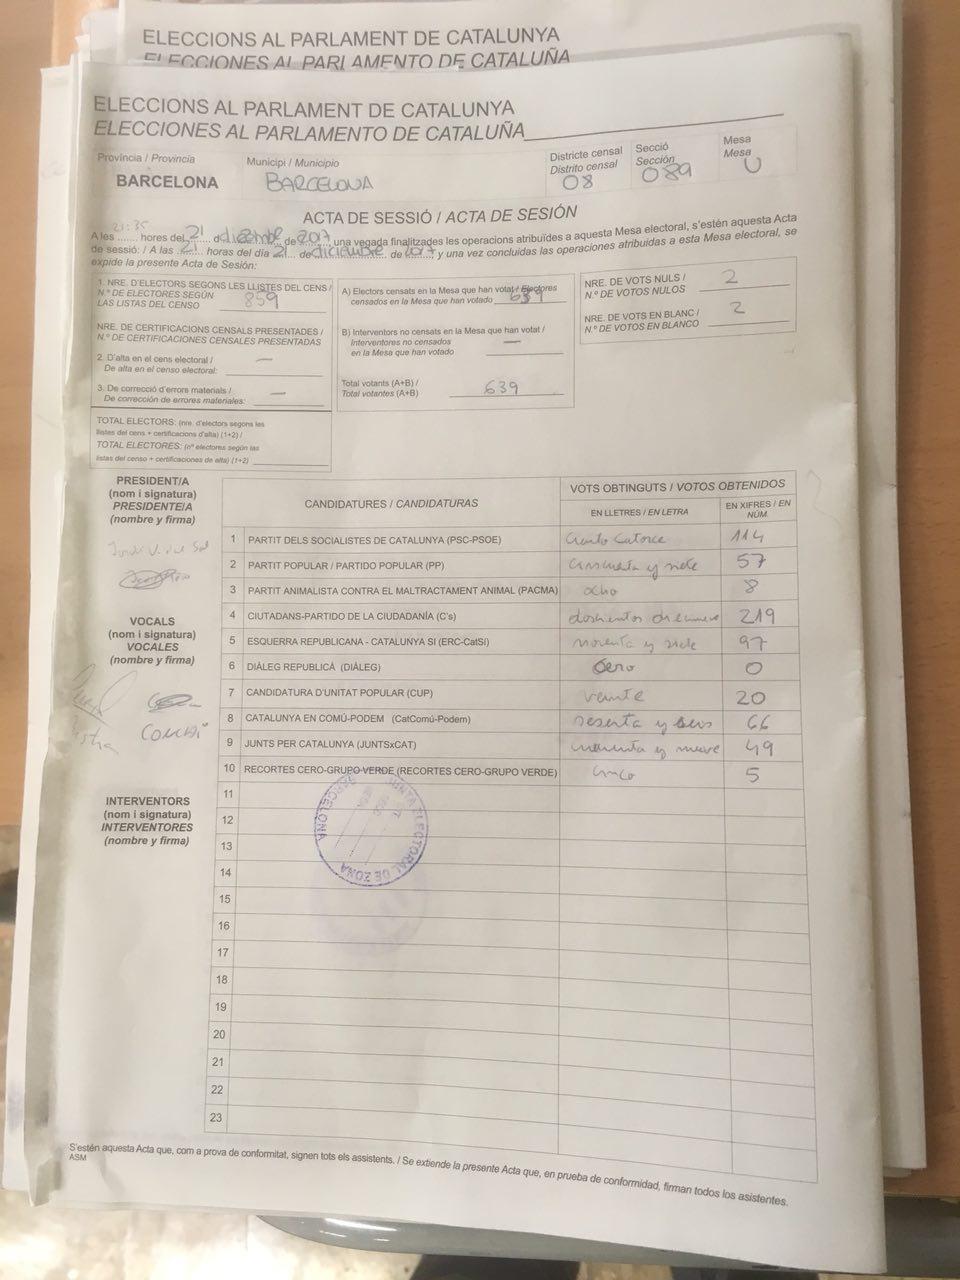 ELECCIONS AL PARLAMENT DE CATALUNYA
ELECCIONES AL PARLAMENTO DE CATALUÑA
ELECCIONS AL PARLAMENT DE CATALUNYA
ELECCIONES AL PARLAMENTO DE CATALUÑA
Província / Provincia
BARCELONA
Municipi / Municipio
BARCELONA
Districte censal
Distrito censal
08
Secció
Sección
089
Mesa
Mesa
U
ACTA DE SESSIÓ / ACTA DE SESIÓN
21:35
A les ...... hores del 21 d diciembre de 2017, una vegada finalitzades les operacions atribuïdes a aquesta Mesa electoral, s'estén aquesta Acta
de sessió: / A las 21 horas del día 21 de diciembre de 2017 y una vez concluidas las operaciones atribuidas a esta Mesa electoral, se
expide la presente Acta de Sesión:
1. NRE. D'ELECTORS SEGONS LES LLISTES DEL CENS /
N.º DE ELECTORES SEGÚN
LAS LISTAS DEL CENSO 859
NRE. DE CERTIFICACIONS CENSALS PRESENTADES /
N.º DE CERTIFICACIONES CENSALES PRESENTADAS
2. D'alta en el cens electoral /
De alta en el censo electoral: —
3. De correcció d'errors materials /
De corrección de errores materiales: —
TOTAL ELECTORS: (nre. d'electors segons les
llistes del cens + certificacions d'alta) (1+2) /
TOTAL ELECTORES: (nº electores según las
listas del censo + certificaciones de alta) (1+2)
A) Electors censats en la Mesa que han votat / Electores
censados en la Mesa que han votado 639
B) Interventors no censats en la Mesa que han votat /
Interventores no censados
en la Mesa que han votado —
Total votants (A+B) /
Total votantes (A+B) 639
NRE. DE VOTS NULS /
N.º DE VOTOS NULOS 2
NRE. DE VOTS EN BLANC /
N.º DE VOTOS EN BLANCO 2
PRESIDENT/A
(nom i signatura)
PRESIDENTE/A
(nombre y firma)
VOCALS
(nom i signatura)
VOCALES
(nombre y firma)
INTERVENTORS
(nom i signatura)
INTERVENTORES
(nombre y firma)
CANDIDATURES / CANDIDATURAS
VOTS OBTINGUTS / VOTOS OBTENIDOS
EN LLETRES / EN LETRA
EN XIFRES / EN NÚM.
1 PARTIT DELS SOCIALISTES DE CATALUNYA (PSC-PSOE) Ciento Catorce 114
2 PARTIT POPULAR / PARTIDO POPULAR (PP) cincuenta y siete 57
3 PARTIT ANIMALISTA CONTRA EL MALTRACTAMENT ANIMAL (PACMA) ocho 8
4 CIUTADANS-PARTIDO DE LA CIUDADANÍA (C's) 219
5 ESQUERRA REPUBLICANA - CATALUNYA SI (ERC-CatSí) noventa y siete 97
6 DIÀLEG REPUBLICÀ (DIÀLEG) Cero 0
7 CANDIDATURA D'UNITAT POPULAR (CUP) veinte 20
8 CATALUNYA EN COMÚ-PODEM (CatComú-Podem) sesenta y seis 66
9 JUNTS PER CATALUNYA (JUNTSxCAT) cuarenta y nueve 49
10 RECORTES CERO-GRUPO VERDE (RECORTES CERO-GRUPO VERDE) cinco 5
11
12
13
14
15
16
17
18
19
20
21
22
23
JUNTA ELECTORAL DE ZONA
BARCELONA
S'estén aquesta Acta que, com a prova de conformitat, signen tots els assistents. / Se extiende la presente Acta que, en prueba de conformidad, firman todos los asistentes.
ASM